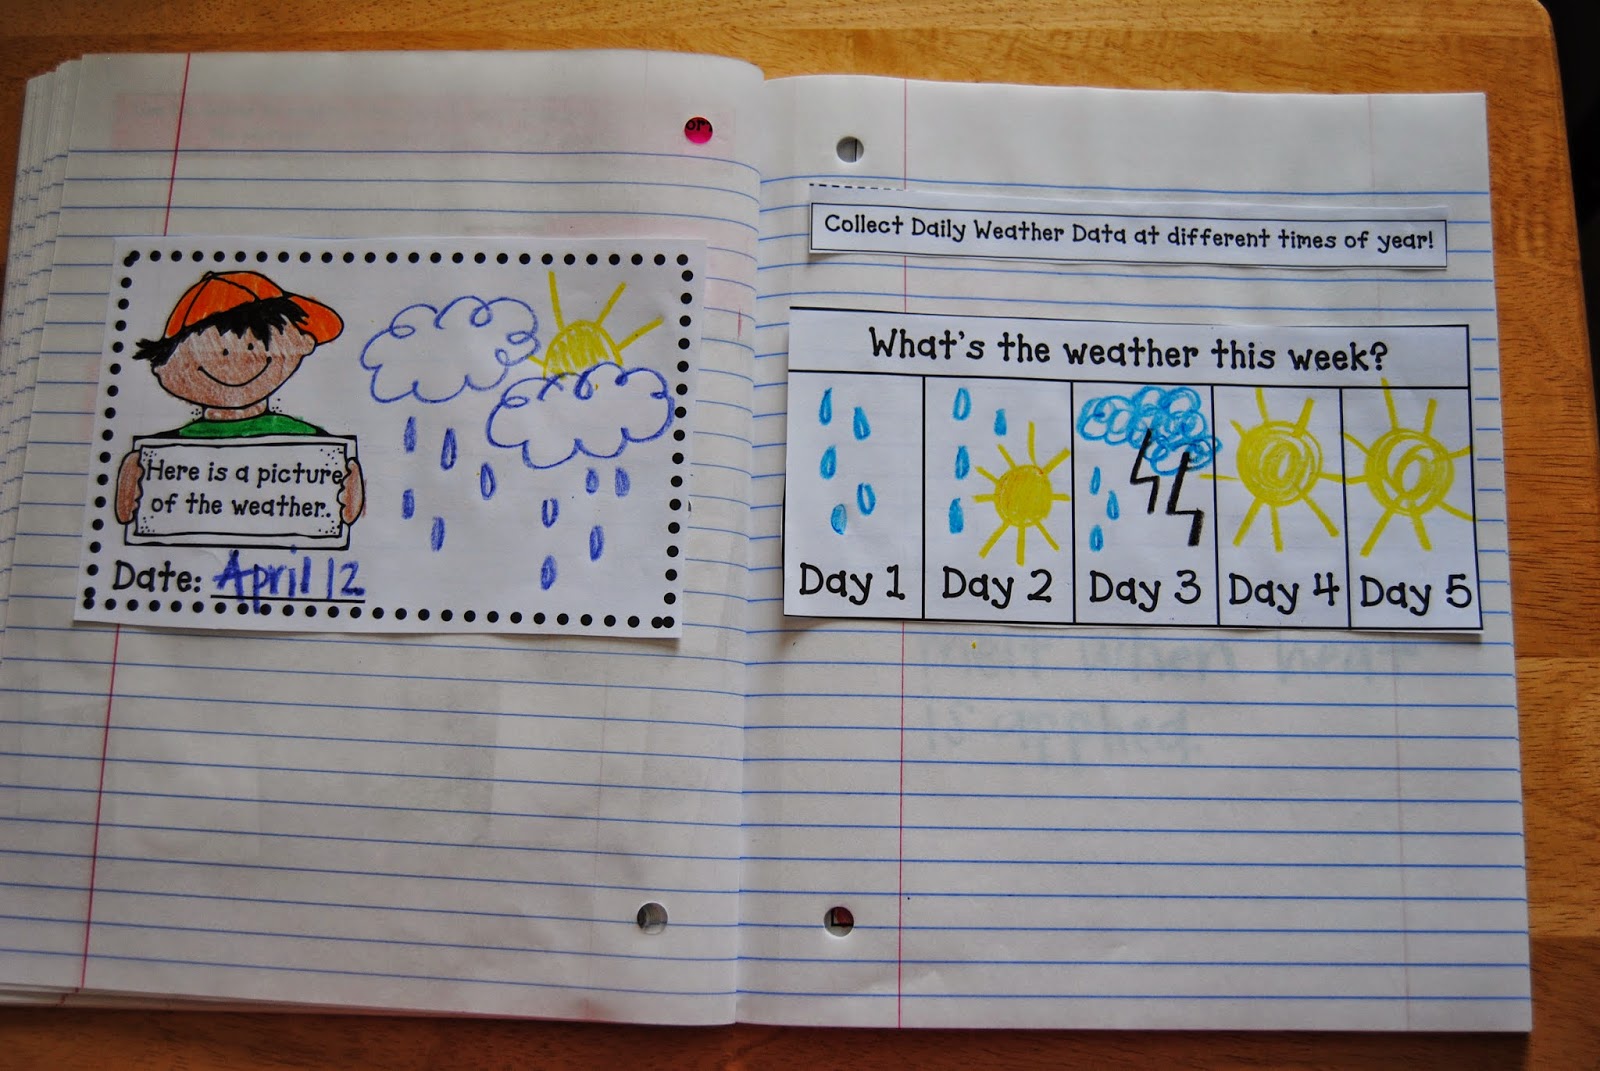 Here is a picture
of the weather.
Date: April 12
Collect Daily Weather Data at different times of year!
What's the weather this week?
Day 1 Day 2 Day 3 Day 4 Day 5
melt when heat
is applied.